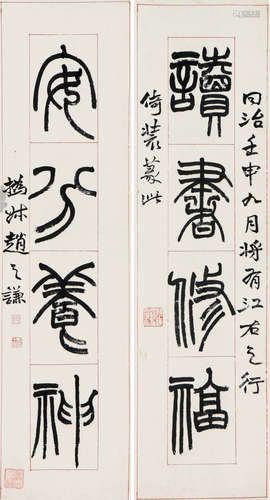 同治壬申九月將有江右之行
讀書修福
倚裝篆此
安分養神
撝叔趙之謙